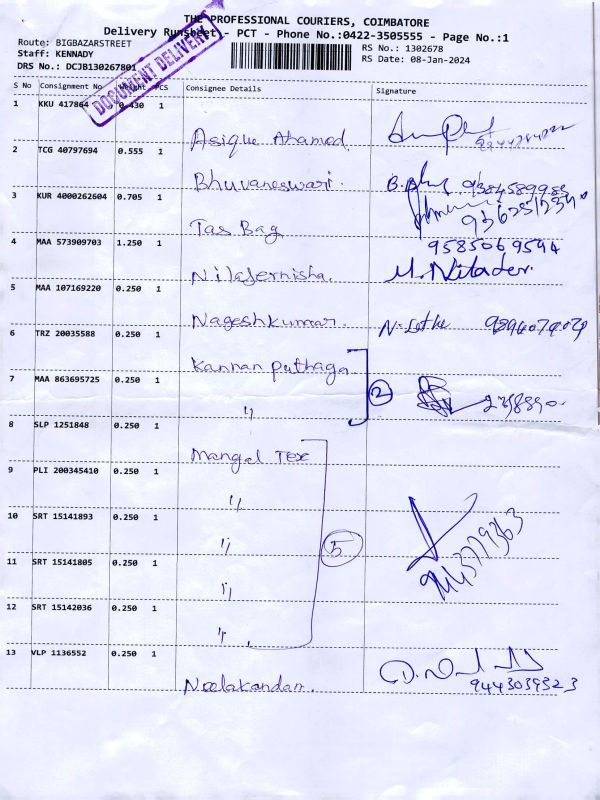 THE PROFESSIONAL COURIERS, COIMBATORE
Delivery Runsheet - PCT - Phone No.:0422-3505555 - Page No.:1
Route: BIGBAZARSTREET
Staff: KENNADY
DRS No.: DCJB130267801
RS No.: 1302678
RS Date: 08-Jan-2024
DOCUMENT DELIVERY
S No Consignment No Weight PCS Consignee Details Signature
1 KKU 417864 0.430 1
Asique Ahamed
2 TCG 40797694 0.555 1
Bhuvaneswari. 9384589983
3 KUR 4000262604 0.705 1
Tas Bag
4 MAA 573909703 1.250 1 9585069594
Nilafernisha.
5 MAA 107169220 0.250 1
Nageshkumar.
6 TRZ 20035588 0.250 1
Kannan puthaga
7 MAA 863695725 0.250 1
" 2
8 SLP 1251848 0.250 1
Mangal Tex
9 PLI 200345410 0.250 1
"
10 SRT 15141893 0.250 1
" 5
11 SRT 15141805 0.250 1
"
12 SRT 15142036 0.250 1
"
13 VLP 1136552 0.250 1
Neelakandan. 9443039323